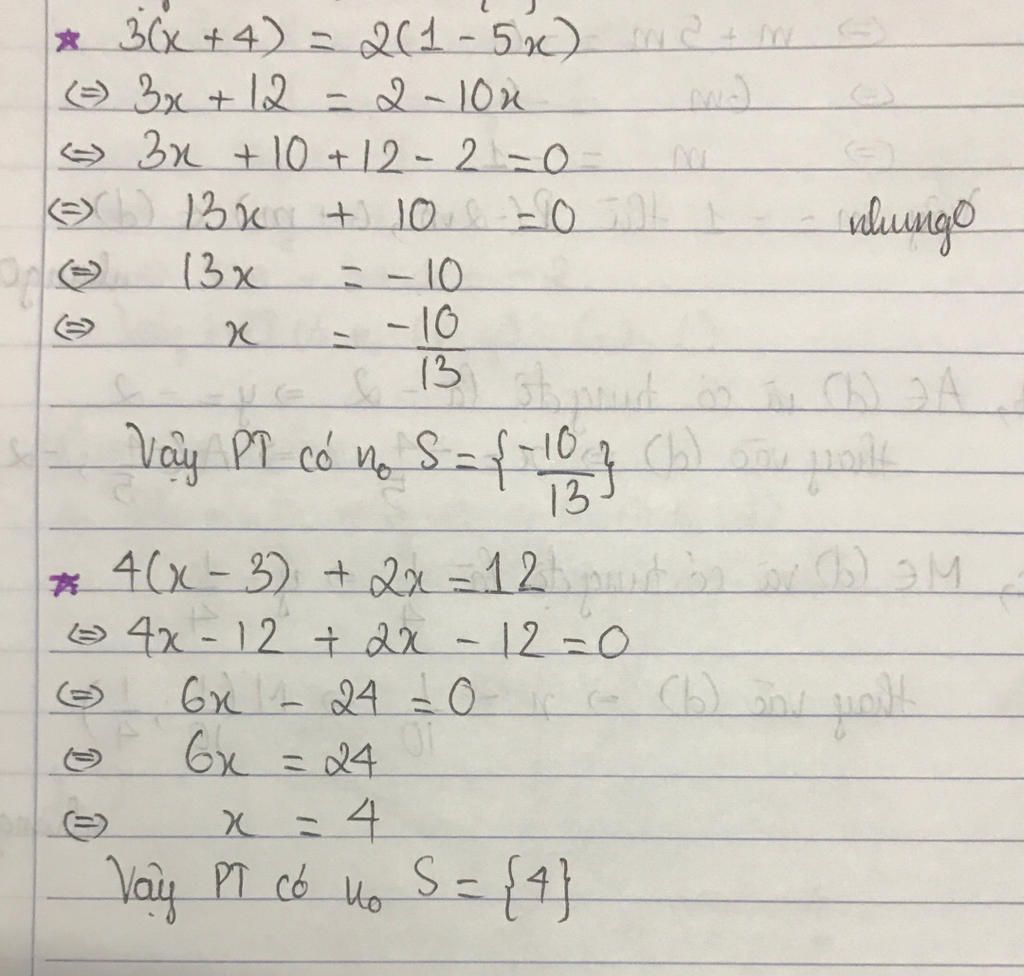 * 3(x + 4) = 2(1 - 5x)
⇔ 3x + 12 = 2 - 10x
⇔ 3x + 10 + 12 - 2 = 0
⇔ 13x + 10 = 0 nhungo
⇔ 13x = -10
⇔ x = -10/13
Vậy PT có n₀ S = {-10/13}
* 4(x - 3) + 2x = 12
⇔ 4x - 12 + 2x - 12 = 0
⇔ 6x - 24 = 0
⇔ 6x = 24
⇔ x = 4
Vậy PT có n₀ S = {4}